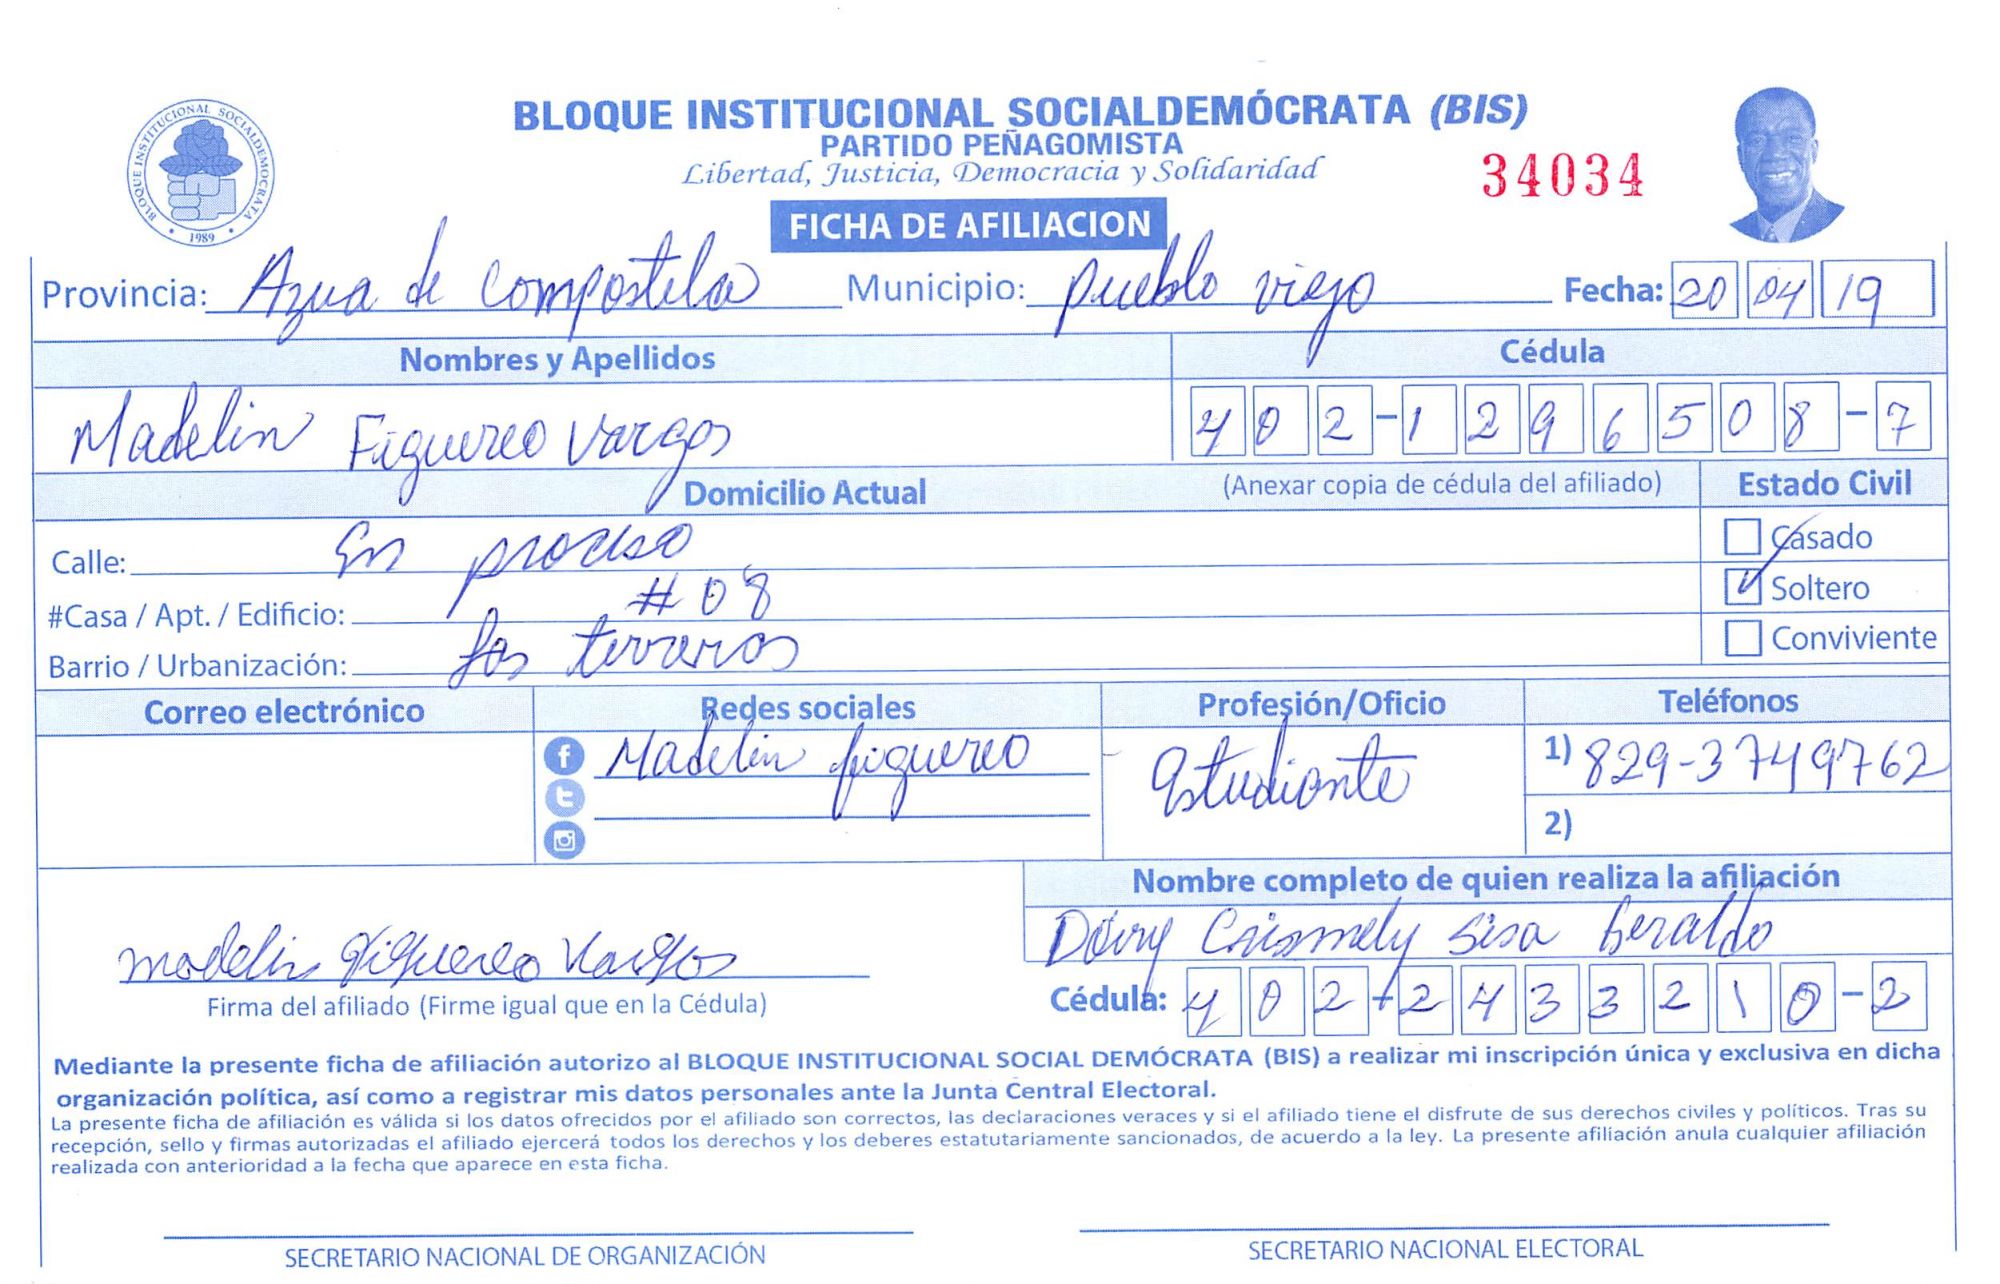 BLOQUE INSTITUCIONAL SOCIALDEMOCRATA
1989
BLOQUE INSTITUCIONAL SOCIALDEMÓCRATA (BIS)
PARTIDO PEÑAGOMISTA
Libertad, Justicia, Democracia y Solidaridad
34034
FICHA DE AFILIACION
Provincia: Azua de compostela Municipio: pueblo viejo Fecha: 20 04 19
Nombres y Apellidos Cédula
Madelin Figuereo Vargas 402-1296508-7
Domicilio Actual (Anexar copia de cédula del afiliado) Estado Civil
Calle: En proceso Casado
#Casa / Apt. / Edificio: #08 Soltero
Barrio / Urbanización: Los terreros Conviviente
Correo electrónico Redes sociales Profesión/Oficio Teléfonos
Madelin figuereo Estudiante 1) 829-3749762
2)
Nombre completo de quien realiza la afiliación
Crismely Sisa
madelin Figuereo Vargas
Firma del afiliado (Firme igual que en la Cédula) Cédula: 402-2433210-2
Mediante la presente ficha de afiliación autorizo al BLOQUE INSTITUCIONAL SOCIAL DEMÓCRATA (BIS) a realizar mi inscripción única y exclusiva en dicha
organización política, así como a registrar mis datos personales ante la Junta Central Electoral.
La presente ficha de afiliación es válida si los datos ofrecidos por el afiliado son correctos, las declaraciones veraces y si el afiliado tiene el disfrute de sus derechos civiles y políticos. Tras su
recepción, sello y firmas autorizadas el afiliado ejercerá todos los derechos y los deberes estatutariamente sancionados, de acuerdo a la ley. La presente afiliación anula cualquier afiliación
realizada con anterioridad a la fecha que aparece en esta ficha.
SECRETARIO NACIONAL DE ORGANIZACIÓN SECRETARIO NACIONAL ELECTORAL